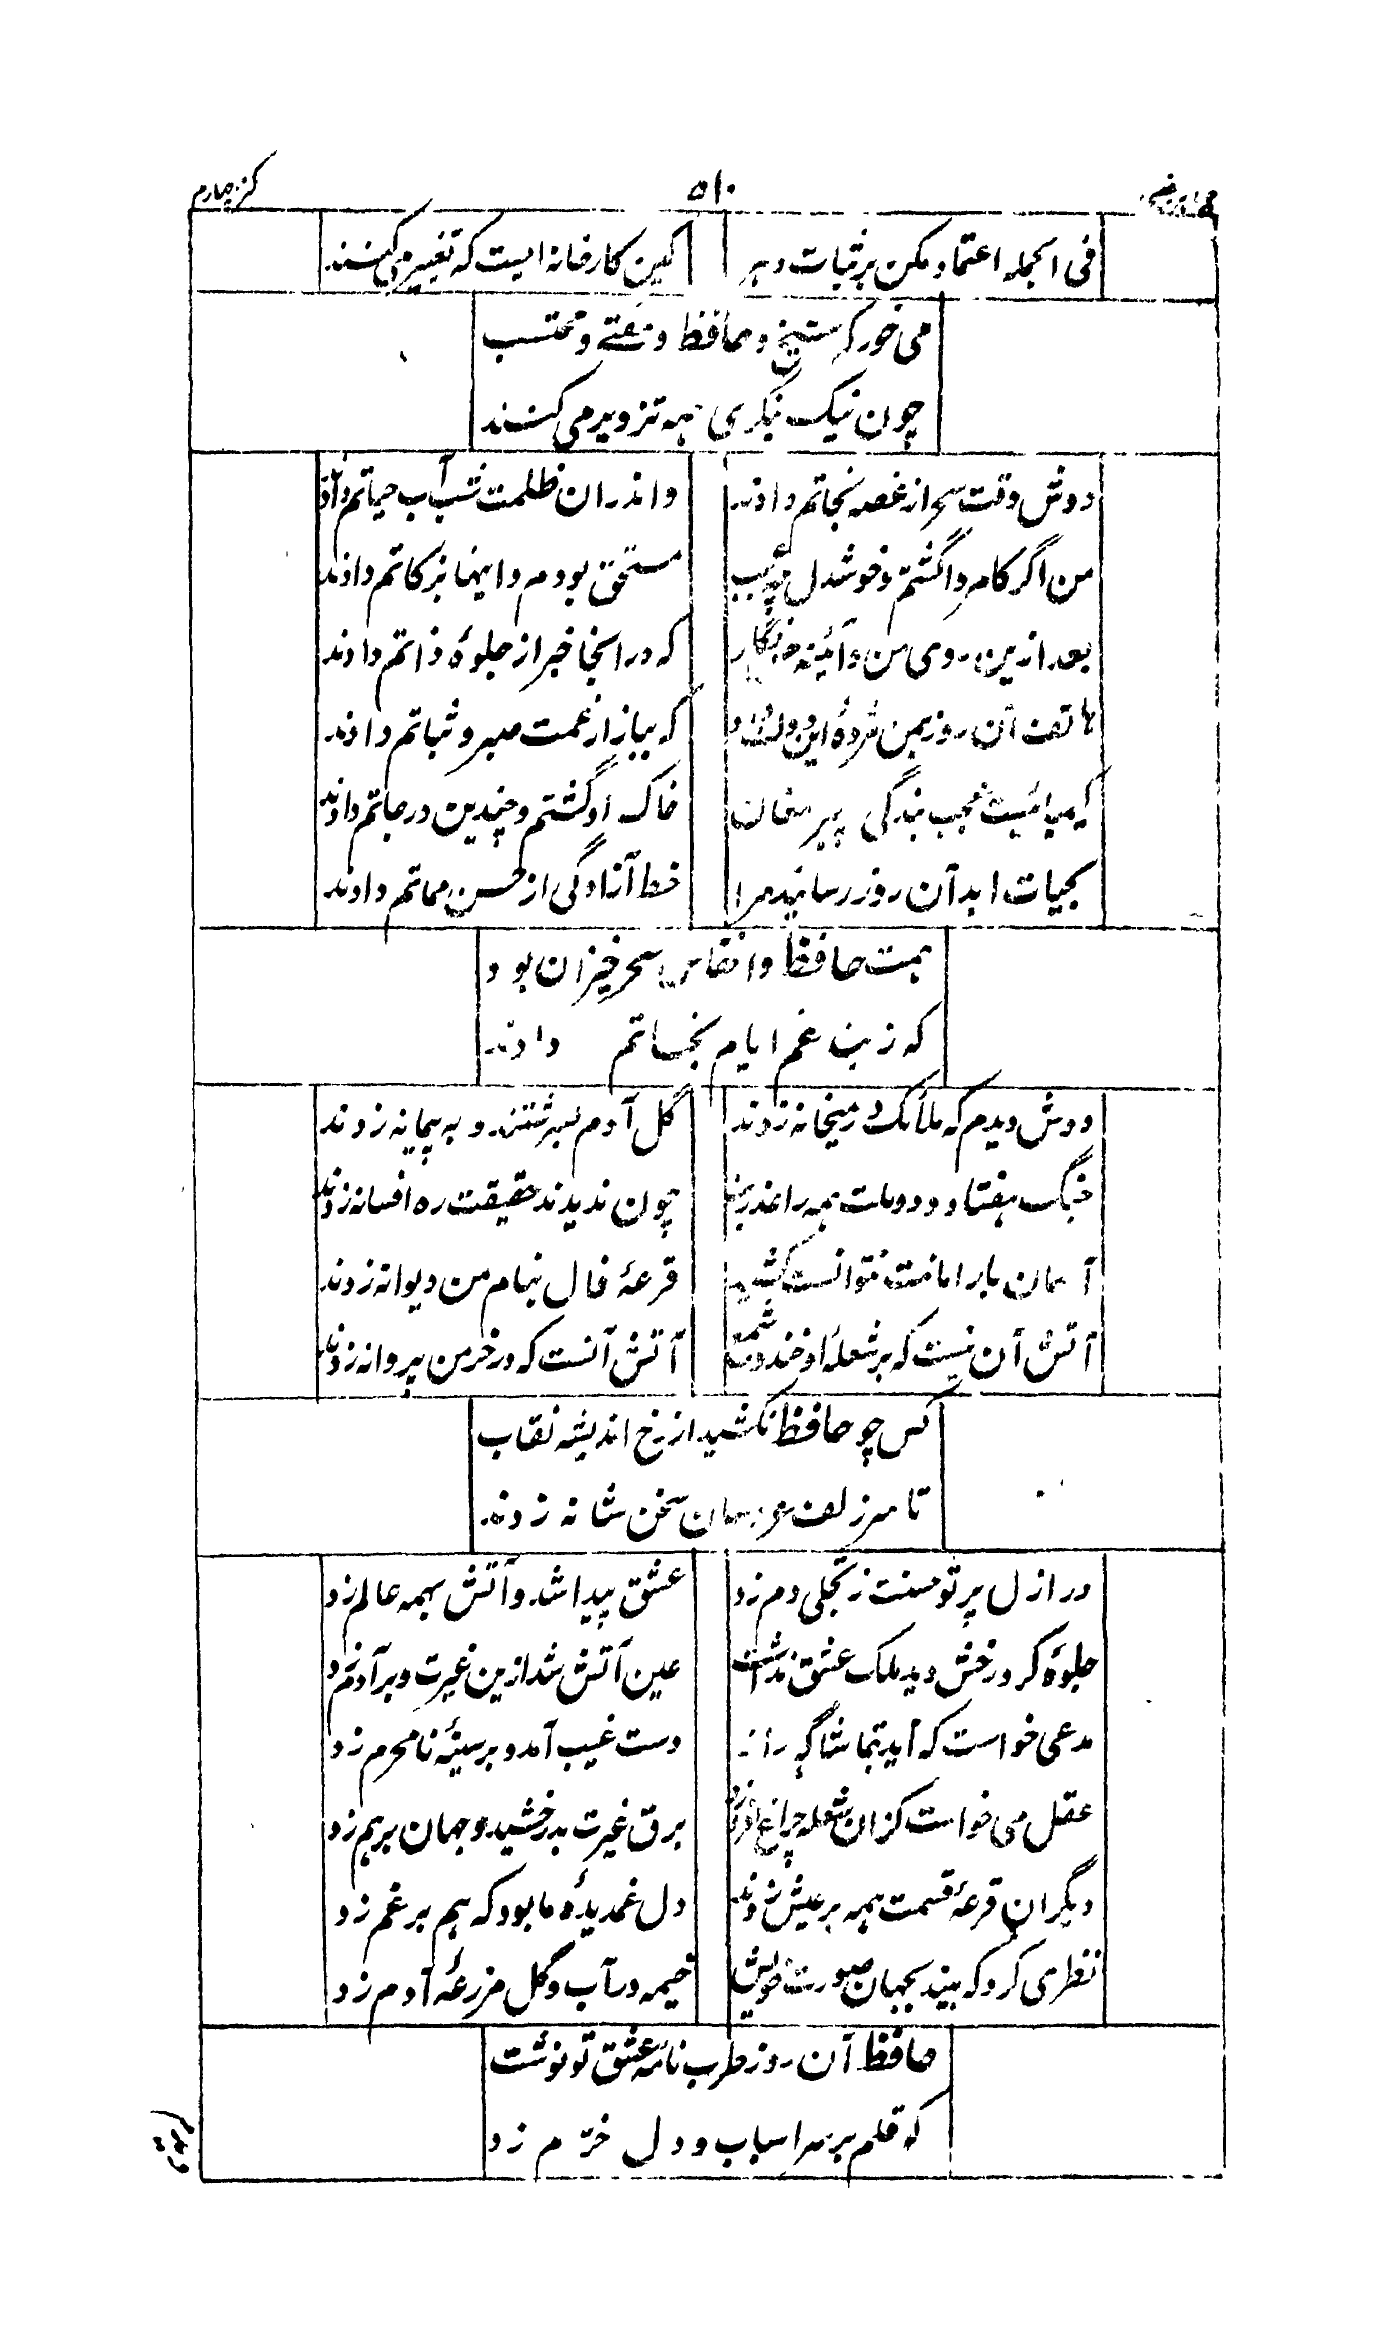 ۵۱۰
کنز چهارم
فی الجمله اعتماد مکن بر ثبات دهر
کین کارخانه ایست که تغییر می کنند
می خور که شیخ و حافظ و مفتے و محتسب
چون نیک بنگری همه تزویر می کنند
دوش وقت سحر از غصه نجاتم دادند
واندران ظلمت شب آب حیاتم دادند
من اگر کام روا گشتم و خوشدل چه عجب
مستحق بودم و اینها بزکاتم دادند
بعد ازین روی من و آئینه حسن نگار
که در انجا خبر از جلوۂ ذاتم دادند
هاتف آن روز بمن مژدۂ این دولت داد
که ببازار غمت صبر و ثباتم دادند
کیمیائیست عجب بندگی پیر مغان
خاک او گشتم و چندین درجاتم دادند
بحیات ابد آن روز رسانید مرا
خط آزادگی از حسن مماتم دادند
همت حافظ و انفاس سحر خیزان بود
که ز بند غم ایام نجاتم دادند
دوش دیدم که ملائک در میخانه زدند
گل آدم بسرشتند و به پیمانه زدند
جنگ هفتاد و دو ملت همه را عذر بنه
چون ندیدند حقیقت ره افسانه زدند
آسمان بار امانت نتوانست کشید
قرعۂ فال بنام من دیوانه زدند
آتش آن نیست که بر شعلۂ او خندد شمع
آتش آنست که در خرمن پروانه زدند
کس چو حافظ نکشید از رخ اندیشه نقاب
تا سر زلف عروسان سخن شانه زدند
در ازل پرتو حسنت ز تجلی دم زد
عشق پیدا شد و آتش بهمه عالم زد
جلوۂ کرد رخش دید ملک عشق نداشت
عین آتش شد ازین غیرت و بر آدم زد
مدعی خواست که آید بتماشاگه راز
دست غیب آمد و بر سینۂ نامحرم زد
عقل می خواست کزان شعله چراغ افروزد
برق غیرت بدرخشید و جهان برهم زد
دیگران قرعۂ قسمت همه بر عیش زدند
دل غمدیدۂ ما بود که هم بر غم زد
نظری کرد که بیند بجهان صورت خویش
خیمه در آب و گل مزرعۂ آدم زد
حافظ آن روز طرب نامۂ عشق تو نوشت
که قلم بر سر اسباب و دل خرّم زد